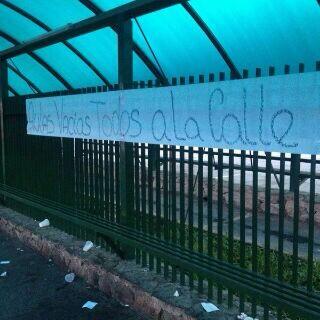 Aulas Vacías Todos a La Calle